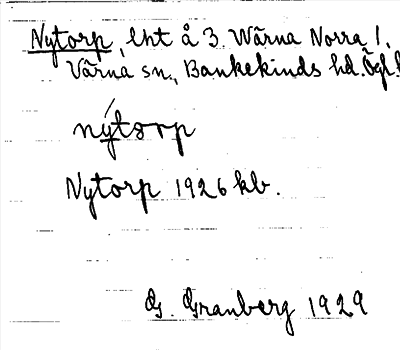 Nytorp, lht å 3 Wärna Norra 1,
Värna sn., Bankekinds hd. Ögl.
nýtorp
Nytorp 1926 kb.
G. Granberg 1929